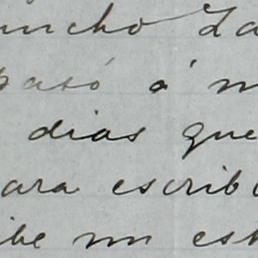 uncho La
pasó á m
dias que
para escrib
ibe un est